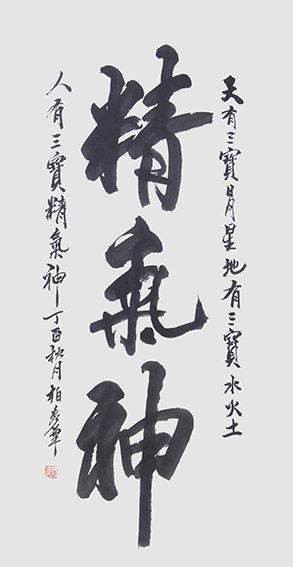 天有三寶日月星地有三寶水火土
精氣神
人有三寶精氣神丁酉秋月柏